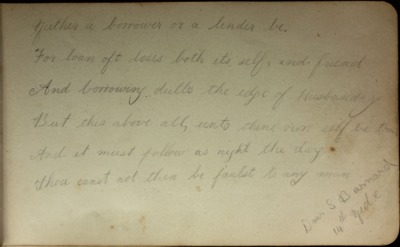 Neither a borrower or a lender be.
For loan oft loses both its self, and friend
And borrowing dulls the edge of Husbandry
But this above all, unto thine own self be true
And it must follow as night the day
Thou canst not then be faulst to any man
S Barnard
14th